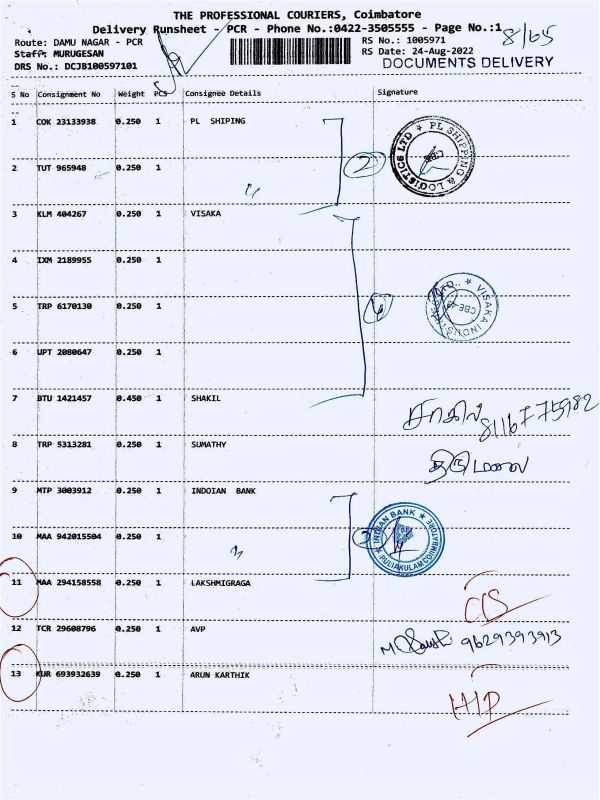 THE PROFESSIONAL COURIERS, Coimbatore
Delivery Runsheet - PCR - Phone No.:0422-3505555 - Page No.:1
8/65
Route: DAMU NAGAR - PCR
RS No.: 1005971
Staff: MURUGESAN
RS Date: 24-Aug-2022
DRS No.: DCJB100597101
DOCUMENTS DELIVERY
S No Consignment No Weight PCS Consignee Details Signature
1 COK 23133938 0.250 1 PL SHIPING
PL SHIPPING & LOGISTICS LTD
2
2 TUT 965948 0.250 1
3 KLM 404267 0.250 1 VISAKA
4 IXM 2189955 0.250 1
5 TRP 6170130 0.250 1
4
VISAKA INDUSTRIES LTD.
CBE-18
6 UPT 2080647 0.250 1
7 BTU 1421457 0.450 1 SHAKIL
சாகில்
8 TRP 5313281 0.250 1 SUMATHY
திருமலை
9 MTP 3003912 0.250 1 INDOIAN BANK
10 MAA 942015504 0.250 1
2
INDIAN BANK
PULIAKULAM COIMBATORE
11 MAA 294158558 0.250 1 LAKSHMIGRAGA
CIS
12 TCR 29608796 0.250 1 AVP
9629393913
13 KUR 693932639 0.250 1 ARUN KARTHIK